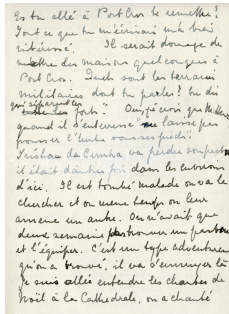 Es tu allé à Port Cros te remettre?
Tout ce que tu m'écrivais m'a bien
intéressé. Il serait dommage de
mettre des maisons quelconques à
Port Cros. Quels sont les terrains
militaires dont tu parles? tu dis
qui séparent les
forts". Ou
quand il s'intéresse ne laisse pas
pousser l'herbe sous ses pieds.
Tristan da Cunha va perdre son
il était dans les environs
d'ici. Il est tombé malade on va le
chercher et en même temps on leur
amène un autre. On n'avait que
deux semaines pour trouver un
et l'équiper. C'est un type aventureux
qu'on a trouvé, il va s'ennuyer là
Je suis allée entendre les chants de
Noël à la Cathédrale, on a chanté